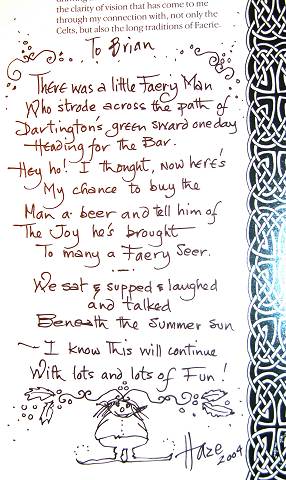 the clarity of vision that has come to me
through my connection with, not only the
Celts, but also the long traditions of Faerie.
To Brian
There was a little Faery Man
Who strode across the path of
Dartington's green sward one day
Heading for the Bar.
Hey ho! I thought, now here's
My chance to buy the
Man a beer and tell him of
The Joy he's brought
To many a Faery Seer.
We sat & supped & laughed
and talked
Beneath the Summer Sun
~ I know This will continue
With lots and lots of Fun!
Haze 2004